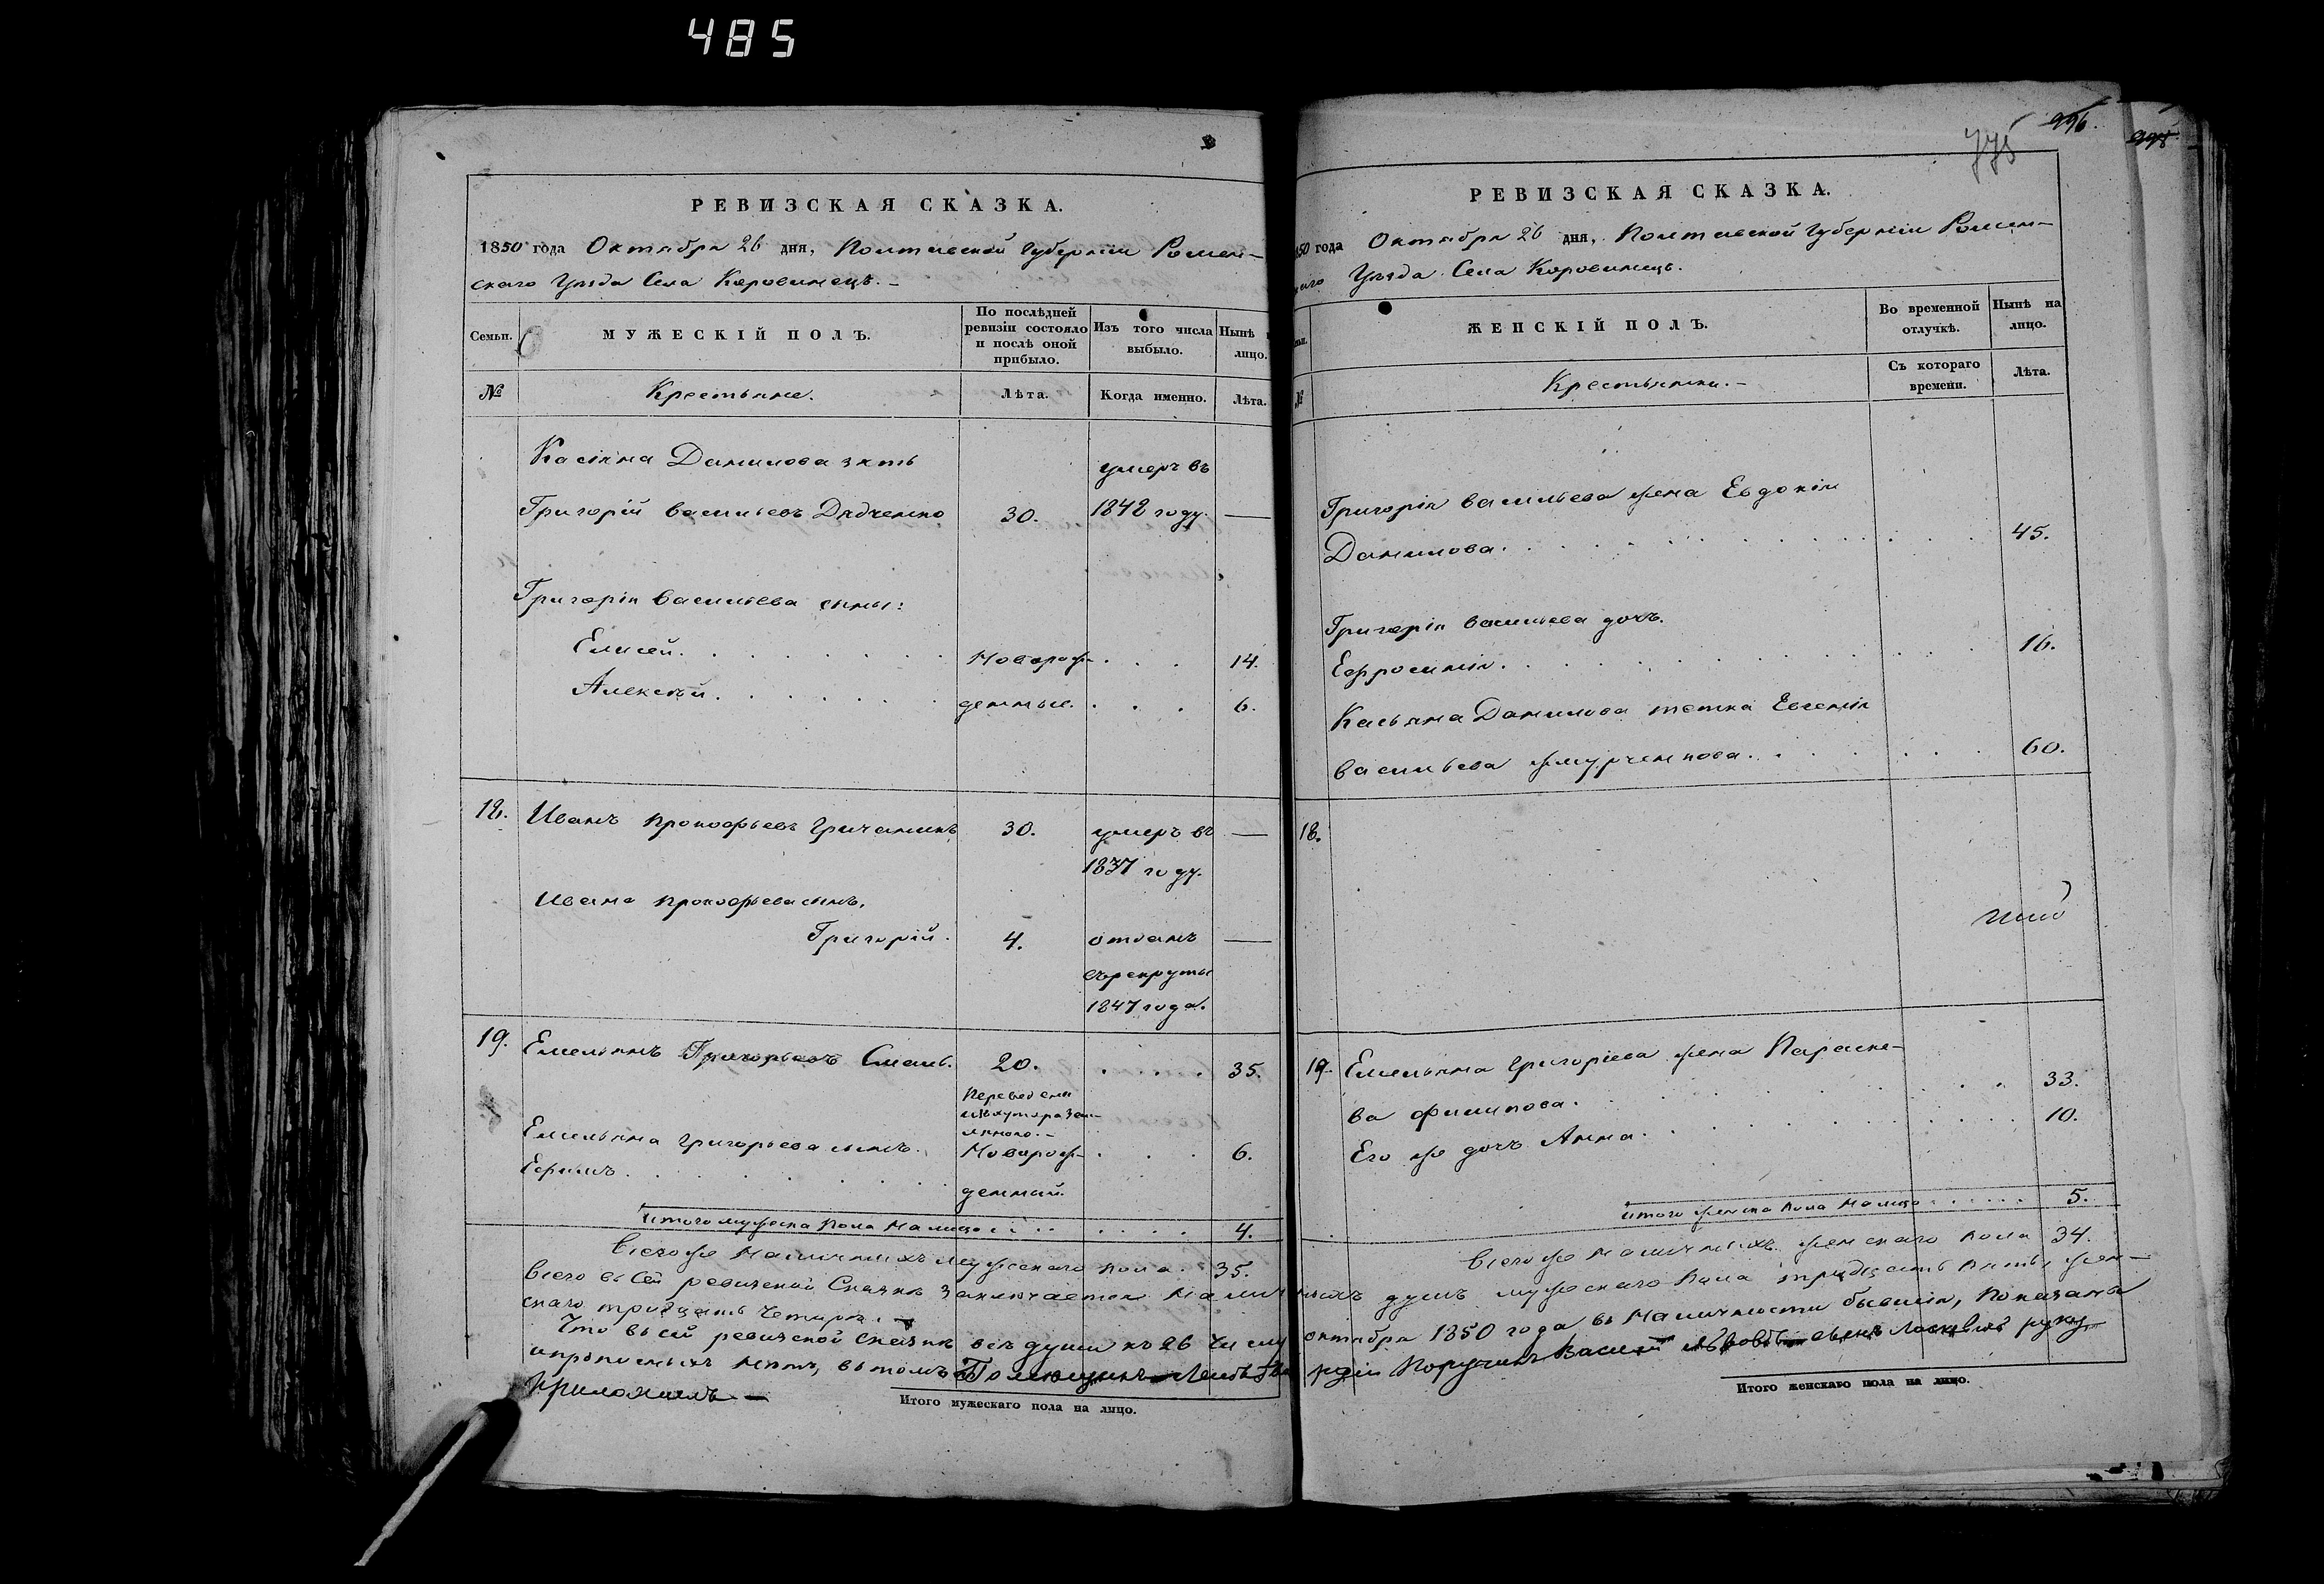 485
РЕВИЗСКАЯ СКАЗКА.
1850 года Октября 26 дня, Полтавской Губерніи Ромен-
скаго Уѣзда Села Коровинецъ.-
Семьи.
МУЖЕСКІЙ ПОЛЪ.
По послѣдней ревизіи состояло и послѣ оной прибыло.
Изъ того числа выбыло.
Нынѣ
лицо.
№
Крестьяне.
Лѣта.
Когда именно.
Лѣта.
Касіяна Данилова зять
умеръ въ
Григорій Васильевъ Дядченко 30. 1842 году. —
Григорія Васильева сыны:
Елисей. Новорож- 14.
Алексѣй. денные. 6.
18. Иванъ Прокофьевъ Гричаникъ 30. умеръ въ —
1837 году.
Ивана Прокофьева сынъ,
Григорій. 4. отданъ —
въ рекруты
1847 года.
19. Емельянъ Григорьевъ 20. 35.
Переведены
Емельяна Григорьева сынъ. Новорож- 6.
Ефимъ. денный.
Итого мужеска пола на лицо 4.
Всего же наличныхъ мужескаго пола. 35.
996.
775
998
РЕВИЗСКАЯ СКАЗКА.
850 года Октября 26 дня, Полтавской Губерніи Ромен-
Уѣзда Села Коровинецъ.
ЖЕНСКІЙ ПОЛЪ.
Во временной отлучкѣ.
Нынѣ на лицо.
№
Крестьянки.-
Съ котораго времени.
Лѣта.
Григорія Васильева жена Евдокія
Данилова. 45.
Григорія Васильева дочь.
Ефросинія. 16.
Касьяна Данилова тетка Евгенія
Васильева Жмурченкова. 60.
18.
19. Емельяна Григоріева жена Параске-
ва Филипова. 33.
Его же дочь Анна. 10.
Итого женска пола налицо 5.
Всего же наличныхъ женскаго пола 34.
Всего въ сей ревизской Сказкѣ заключается наличныхъ душъ мужескаго пола тридцать пять, жен-
скаго тридцать четыре.
Что въ сей ревизской сказкѣ всѣ души къ 26 числу октября 1850 года въ наличности бывшія, показаны
и прописныхъ нѣтъ, въ томъ Помѣщикъ Лейбъ Гвардіи Поручикъ Василій руку
приложилъ —
Итого мужескаго пола на лицо.
Итого женскаго пола на лицо.